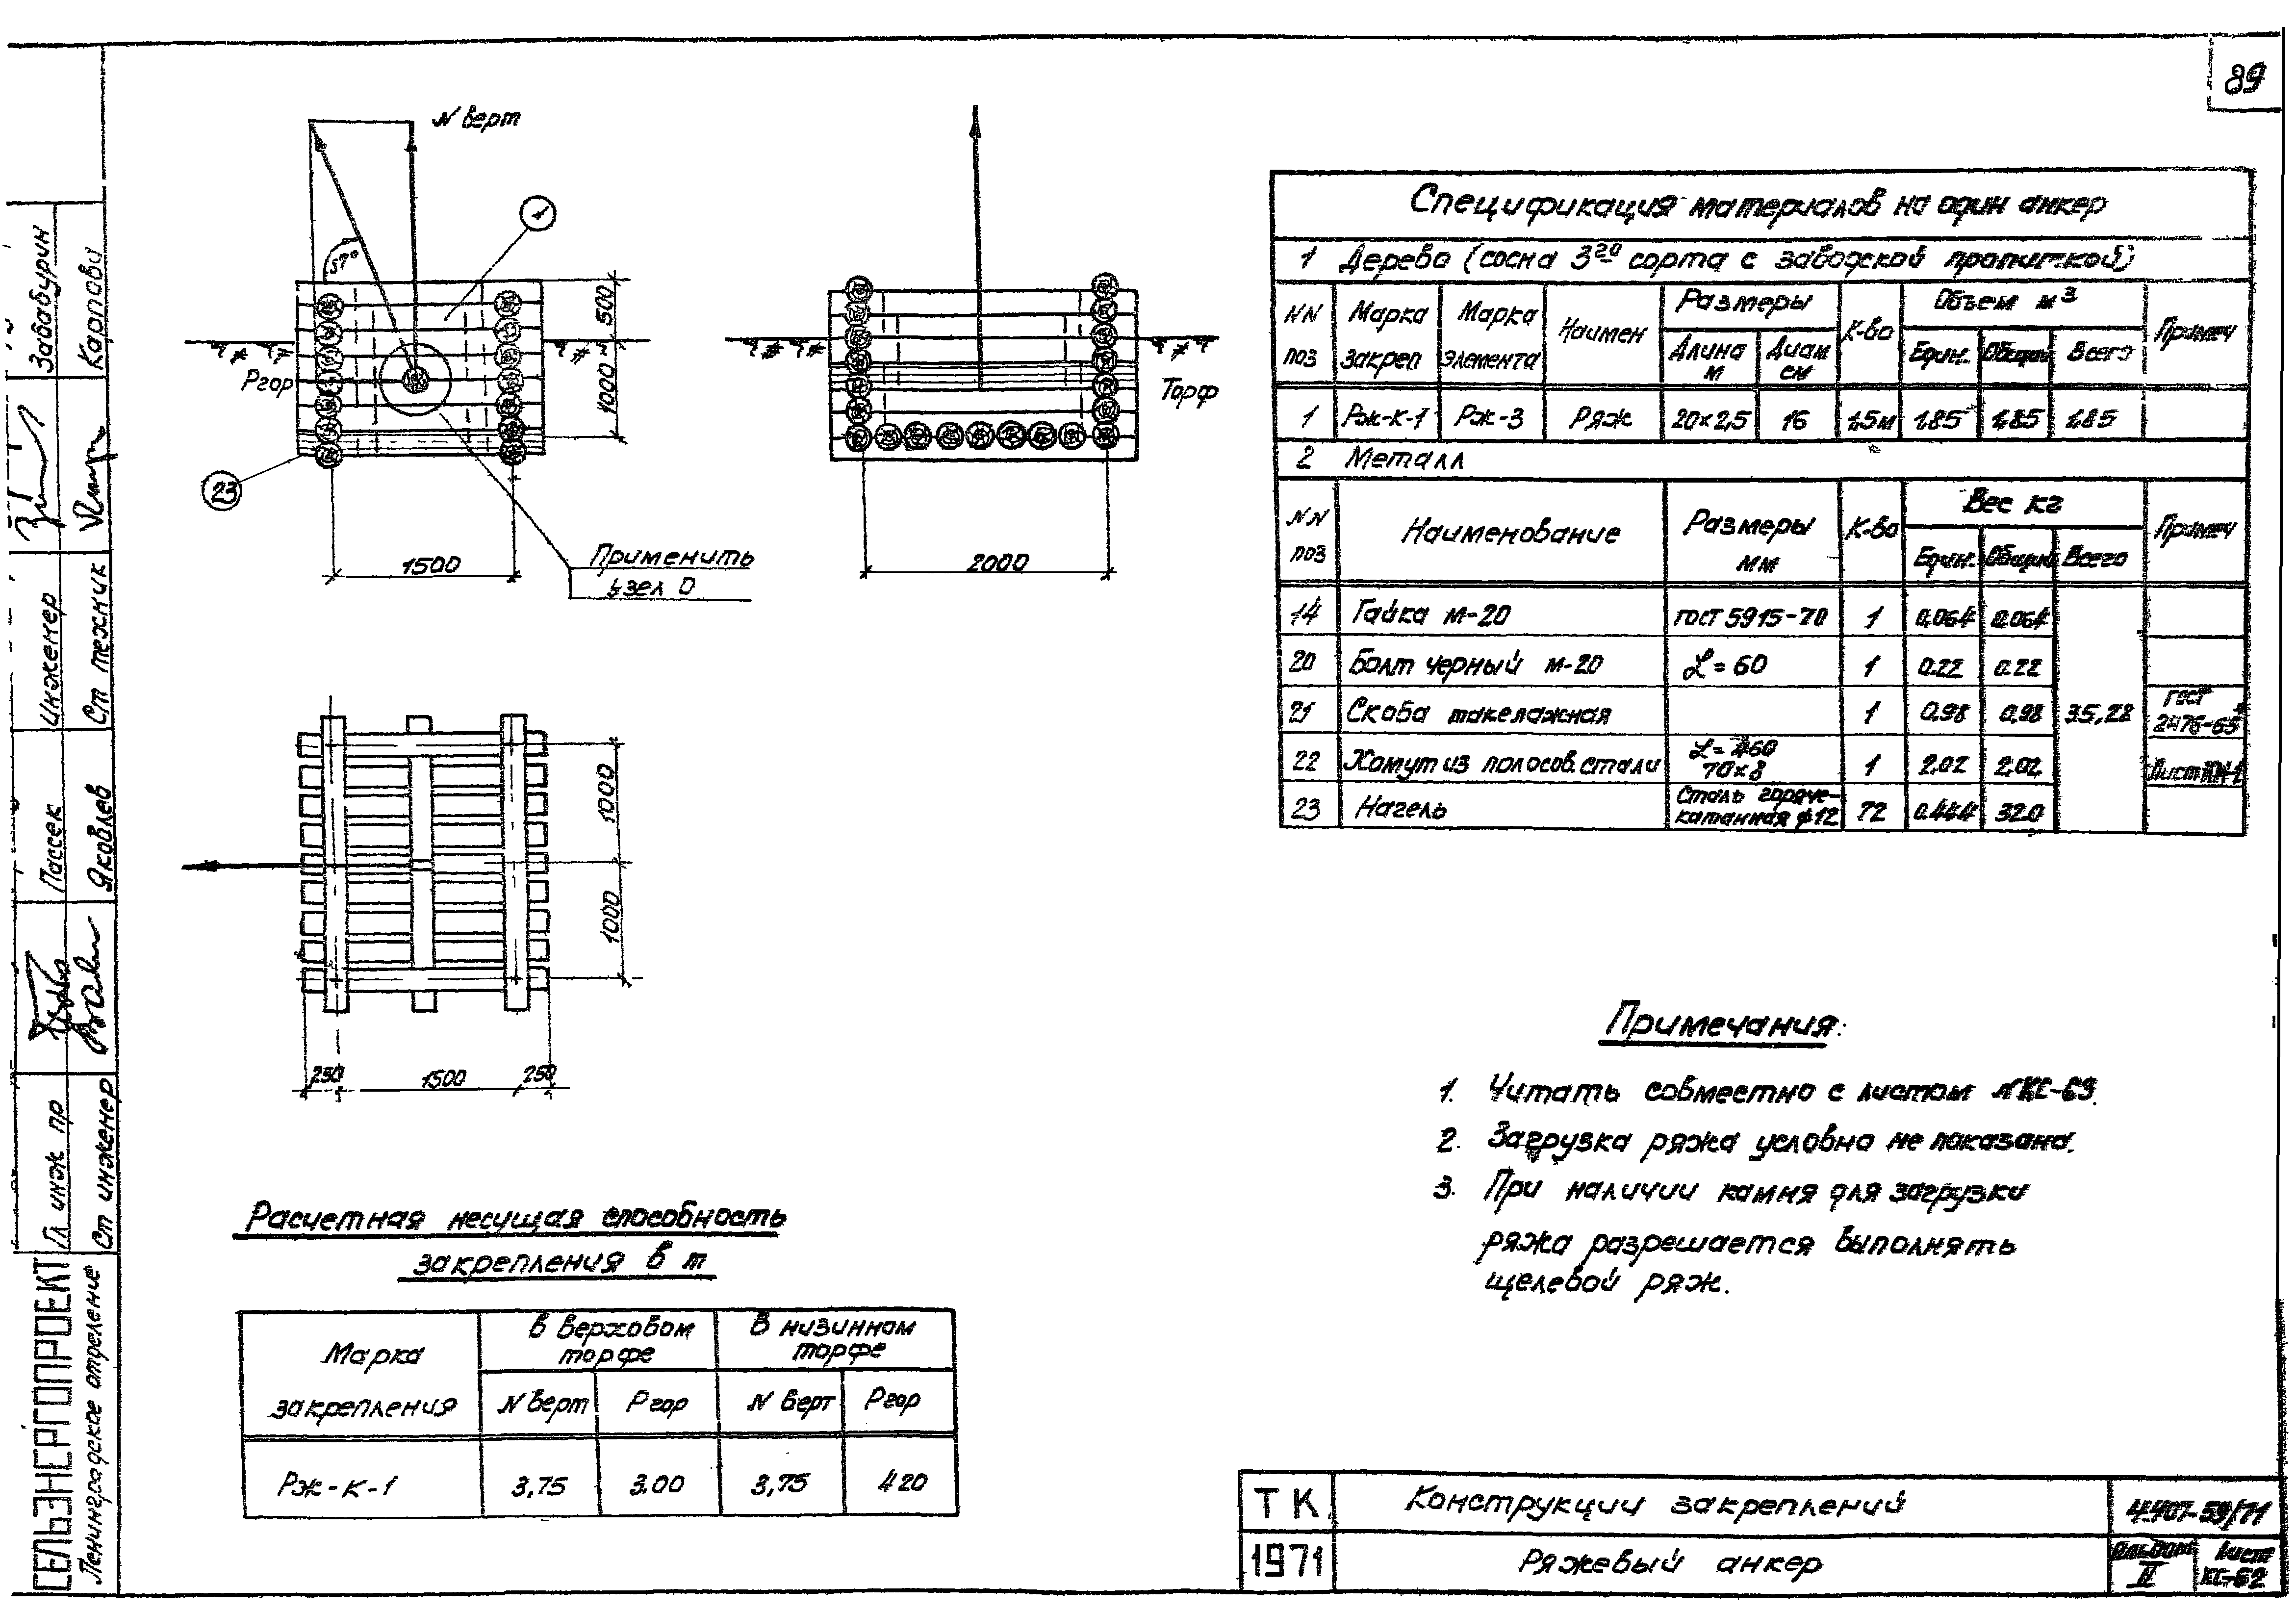 89
N верт
1
57°
Ргор
500
1000
23
1500
Применить
узел О
Торф
2000
1000
1000
250
1500
250
Спецификация материалов на один анкер
1 Дерево (сосна 3го сорта с заводской пропиткой)
NN поз
Марка Закреп
Марка элемента
Наимен
Размеры
Длина м
Диам см
К-во
Объем м3
Един.
Общий
Всего
Примеч
1 Рж-К-1 Рж-3 Ряж 20×2,5 16 1,5м 1,85 1,85 1,85
2 Металл
NN поз
Наименование
Размеры мм
К-во
Вес кг
Един.
Общий
Всего
Примеч
14 Гайка м-20 гост 5915-70 1 0.064 0.064
20 Болт черный м-20 L=60 1 0.22 0.22
21 Скоба такелажная 1 0,98 0,98 35,28 гост 2476-65
22 Хомут из полосов. стали L=460 70×8 1 2.02 2.02
23 Нагель Сталь горяче-катанная ф12 72 0.444 32.0
Примечания:
1. Читать совместно с листом NКС-63.
2. Загрузка ряжа условно не показана.
3. При наличии камня для загрузки
ряжа разрешается выполнять
щелевой ряж.
Расчетная несущая способность
закрепления в т
Марка закрепления
в верховом торфе
в низинном торфе
N верт
Ргор
N верт
Ргор
Рж-К-1 3,75 3.00 3,75 4.20
ТК
1971
Конструкции закреплений
Ряжевый анкер
4.407-59/71
Альбом II
Лист КС-62
СЕЛЬЭНЕРГОПРОЕКТ
Ленинградское отделение
Гл инж пр
Ст инженер
Пассек
Яковлев
Инженер
Ст техник
Забабурин